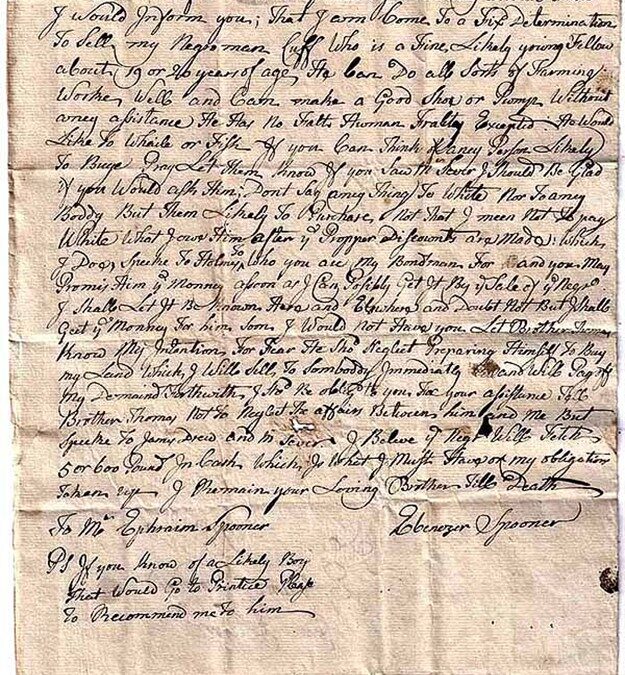 I would Inform you; That I am Come To a Fix Determination
To Sell my Negro man Cuff Who is a Fine, Likely young Fellow
about 19 or 20 years of age, He Can Do all Sorts of Farming
Worke, Well and Can make a Good Shoe or Pump Without
aney assistance He Has no Falts Human Fralty Excepted He Would
Like To Whaile or Fish if you Can Think of aney Person Likely
To Buye Pray Let Them Know if you Saw Mr Sever I Should Be Glad
if you Would ask Him; Dont Say any Thing To White Nor To aney
Boddy But Them Likely To Purchase, Not That I meen Not To pay
White What I owe Him after ye Propper Discounts are Made: Which
I Does, Speeke To Holmes Who you are My Bondman For and you May
Promis Him ye Monney assoon as I Can Posibly Get It By ye Sale of ye Negro
I Shall Let It Be Known Here and Elswhere and Doubt Not But I shall
Geet ye Monney for him Soon I Would Not Have you Let Brother
Know My Intention For Fear He Shd Neglect Preparing Himself To Buy
my Land Which I Will Sell To Somboddy Immediatly and Will Pay off
my Demand Forthwith I Shd Be obligd to you For your assistance Tell
Brother Thomas Not To Neglect The affairs Between him and Me But
Speeke To Drew and Mr Sever I Beleve ye Negro Will Fetch
5 or 600 Pound In Cash Which Is What I Must Have or my obligation
Taken up I Remain your Loving Brother Till Death
To Mr Ephraim Spooner Ebenezer Spooner
PS If you Know of a Likely Boy
That Would Go to Printice Please
To Recommend me To him